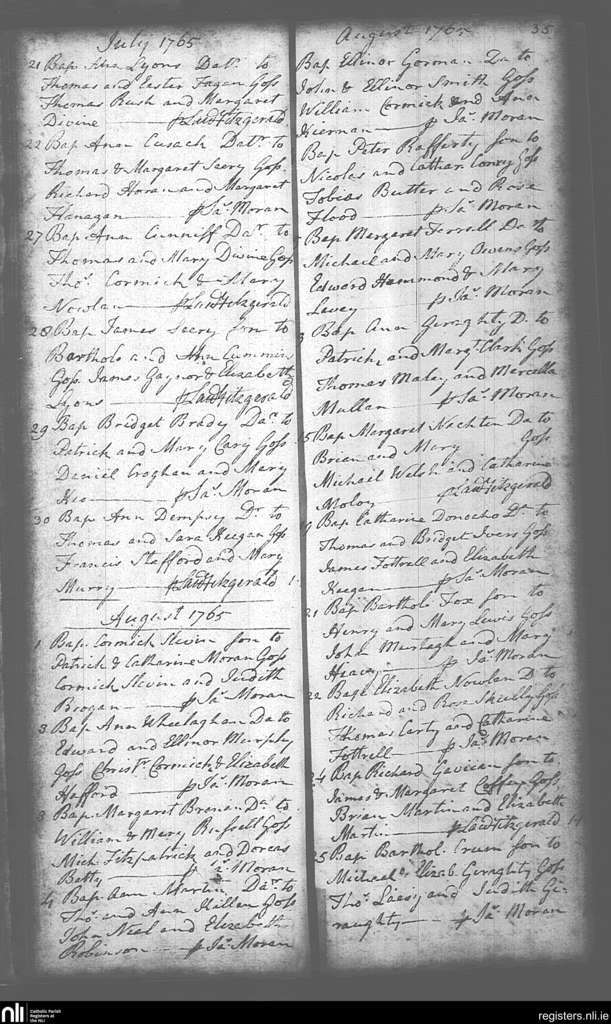 July 1765
21 Bap. Ana Lyons Datr. to
Thomas and Ester Fagan Goss
Thomas Rush and Margaret
Divine p Laud Fitzgerald
22 Bap. Ann Cusack Datr. to
Thomas & Margaret Seery Goss.
Richard Horan and Margaret
Flanagan p Ja. Moran
27 Bap. Ann Cunniff Dar. to
Thomas and Mary Divine Goss
Tho. Cormick & Mary
Nowlan p Laud Fitzgerald
28 Bap. James Seery Son to
Bartholo and Ann Cummin
Goss. James Gaynor & Elizabeth
Lyons p Laud Fitzgerald
29 Bap. Bridget Brady Dar. to
Patrick and Mary Cary Goss
Daniel Croghan and Mary
Keo p Ja. Moran
30 Bap. Ann Dempsey Dr. to
Thomas and Sara Keegan Goss
Francis Stafford and Mary
Murry p Laud Fitzgerald
August 1765
1 Bap. Cormick Slevin Son to
Patrick & Catharine Moran Goss
Cormick Slevin and Judith
Brogan p Ja. Moran
3 Bap. Ann Wheelaghan Da to
Edward and Ellinor Murphy
Goss Christr. Cormick & Elizabeth
Hafford p Ja. Moran
3 Bap. Margaret Brenan Dr. to
William & Mary Russell Goss
Mich. Fitzpatrick and Dorcas
Betty p Ja. Moran
4 Bap. Ann Martin Dar. to
Tho. and Ann Killen Goss
John Neal and Elizabeth
Robinson p Ja. Moran
August 1765 35
Bap. Ellinor Gorman Da to
John & Ellinor Smith Goss
William Cormick and Ann
Kiernan p Ja. Moran
Bap. Peter Rafferty Son to
Nicolas and Cathar. Conry Goss
Tobias Butter and Rose
Flood p Ja. Moran
Bap. Margaret Ferrell Da to
Michael and Mary Owens Goss
Edward Hammond & Mary
Levey p Ja. Moran
Bap. Ann Geraghty D. to
Patrick, and Margt. Clark Goss
Thomas Maley and Marcella
Mullan p Ja. Moran
15 Bap. Margaret Naghten Da to
Brian and Mary Goss
Michael Welsh and Catharine
Moloy p Laud Fitzgerald
Bap. Catharine Donocho Dr. to
Thomas and Bridget Ivers Goss
James Fottrell and Elizabeth
Keegan p Ja. Moran
21 Bap. Bartholo Fox Son to
Henry and Mary Lewis Goss
John Murtagh and Mary
Heavy p Ja. Moran
22 Bap. Elizabeth Nowlan D to
Richard and Rose Skully Goss
Thomas Carty and Catharine
Fottrell p Ja. Moran
24 Bap. Richard Gavican Son to
James & Margaret Goss
Brian Martin and Elizabeth
Martin p Laud Fitzgerald
25 Bap. Barthol. Crum Son to
Michael & Elizab. Geraghty Goss
Tho. Lacey and Judith Ge-
raughty p Ja. Moran
nli
Catholic Parish
Registers at
the NLI
registers.nli.ie